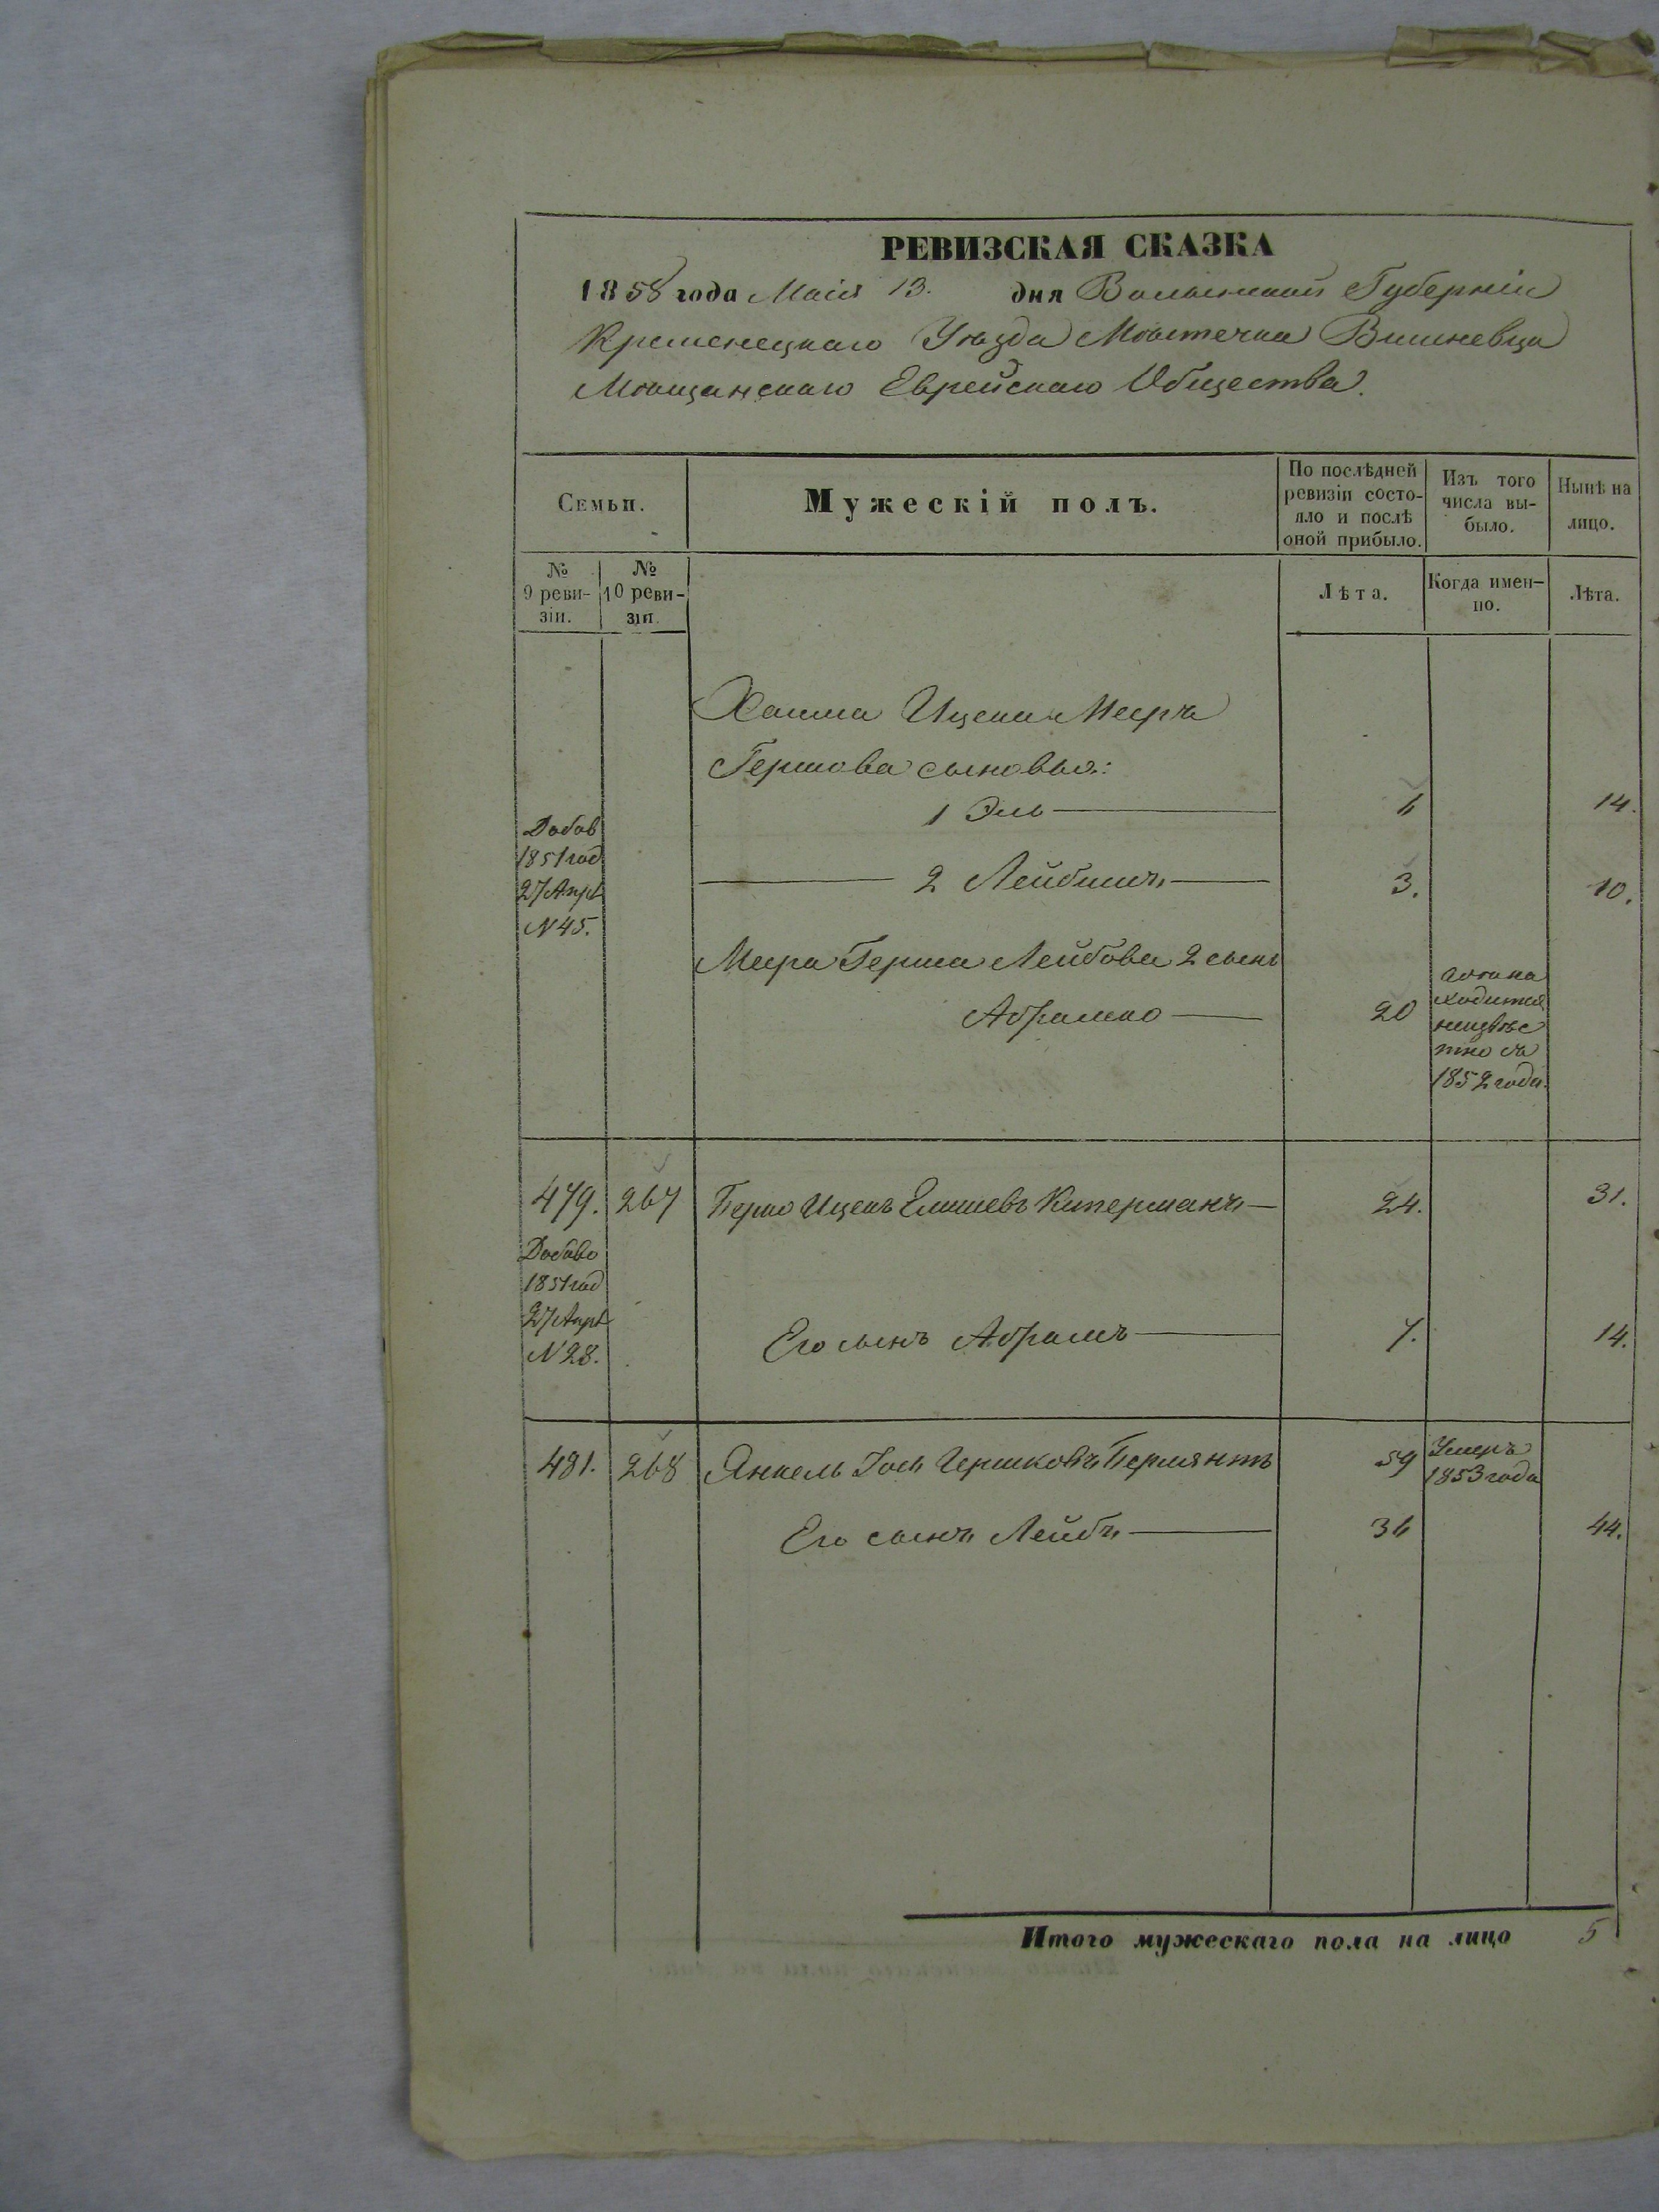 РЕВИЗСКАЯ СКАЗКА
1858 года Маія 13. дня Волынской Губерніи
Кременецкаго Уѣзда Мѣстечка Вишневца
Мѣщанскаго Еврейскаго Общества.
Семьи.
Мужескій полъ.
По послѣдней ревизіи состо-
яло и послѣ
оной прибыло.
Изъ того
числа вы-
было.
Нынѣ на
лицо.
№
9 реви-
зіи.
№
10 реви-
зіи.
Лѣта.
Когда имен-
но.
Лѣта.
Хаима Ицека Меера
Гершова сыновья:
1 Эль 6 14.
Добав
1851 год
27 Апрѣ
N 45.
2 Лейбишъ 3. 10.
Меера Герша Лейбова 2 сынъ
Абрамко 20
находится
неизвѣс
тно съ
1852 года.
479. 267 Берко Ицекъ Елишевъ Киперманъ 24. 31.
Добаво
1851 год
27 Апрѣ
N 28.
Его сынъ Абрамъ 7. 14.
481. 268 Янкель Іось Гершковъ 59
Умеръ
1853 года
Его сынъ Лейбъ 36 44.
Итого мужескаго пола на лицо 5